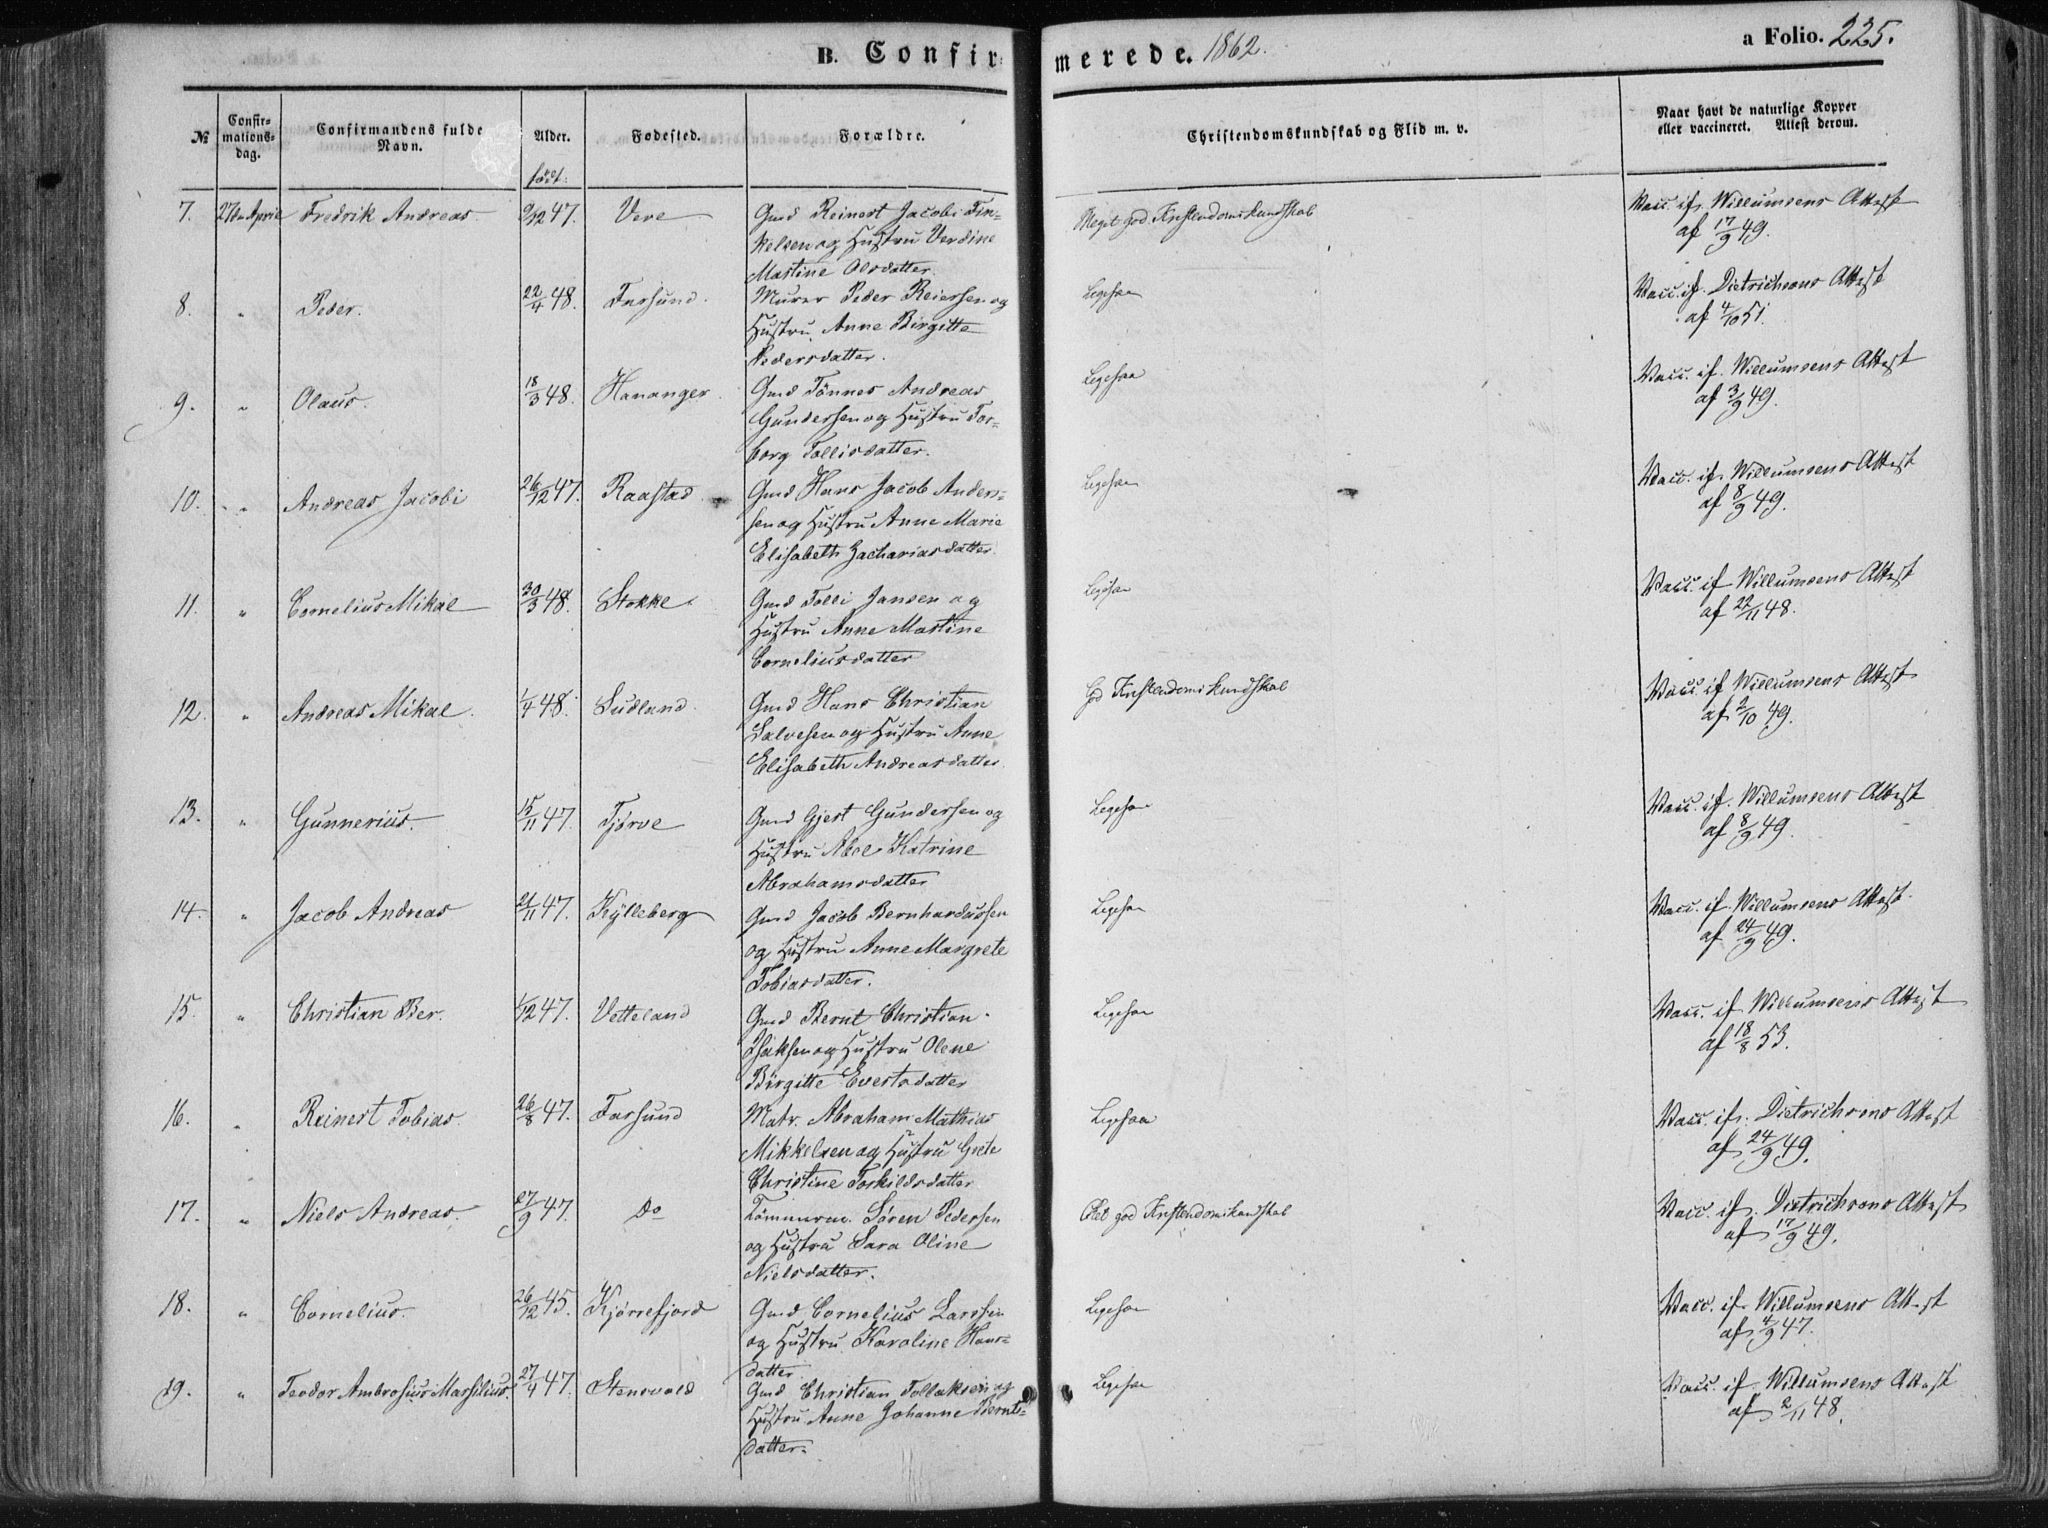 B. Confirmerede. 1862.
a Folio. 225.
№
Confirmationsdag.
Confirmandens fulde Navn.
Alder.
født:
Fødested.
Forældre.
Christendomskundskab og Flid m. v.
Naar havt de naturlige Kopper eller vaccineret. Attest derom.
7. 27de April Fredrik Andreas. 9/12 47. Vere Gmd Reinert Jacobi Tin- Meget god Kristendomskundskab Vacc. if. Willumsens Attest
kelsen og Hustru Verdine af 17/9 49.
Martine Olsdatter.
8. " Peder. 22/4 48. Farsund. Murer Peder Reiersen og Ligesaa Vacc. if. Dietrichsons Attest
Hustru Anne Birgitte af 4/10 51.
Pedersdatter.
9. " Olaus. 18/3 48. Hananger. Gmd Tönnes Andreas Ligesaa Vacc. if. Willumsens Attest
Gundersen og Hustru Tor- af 3/9 49.
borg Tollisdatter.
10. " Andreas Jacobi 26/12 47. Raastad Gmd Hans Jacob Anders- Ligesaa Vacc. if. Willumsens Attest
sen og Hustru Anne Marie af 8/9 49.
Elisabeth Zachariasdatter.
11. " Cornelius Mikal 30/3 48. Stokke. Gmd Tolli Jansen og Ligesaa Vacc. if Willumsens Attest
Hustru Anne Martine af 22/11 48.
Corneliusdatter
12. " Andreas Mikal. 1/4 48. Ludland. Gmd Hans Christian God Kristendomskundskab Vacc. if Willumsens Attest
Salvesen og Hustru Anne af 2/10 49.
Elisabeth Andreasdatter.
13. " Gunnerius. 15/11 47. Tjörve Gmd Gjert Gundersen og Ligesaa Vacc. if. Willumsens Attest
Hustru Abel Katrine af 8/9 49.
Abrahamsdatter
14. " Jacob Andreas 21/11 47. Kylleberg Gmd Jacob Bernhardussen Ligesaa Vacc. if. Willumsens Attest.
og Hustru Anne Margrete af 24/9 49.
Tobiasdatter.
15. " Christian Ber. 1/12 47. Vetteland Gmd Bernt Christian Ligesaa Vacc. if Willumsens Attest
Isaksen og Hustru Olene af 18/8 53.
Birgitte Evertsdatter
16. " Reinert Tobias. 26/8 47. Farsund Matr. Abraham Mathias Ligesaa Vacc. if. Dietrichsons Attest
Mikkelsen og Hustru Grete af 24/9 49.
Christine Torkildsdatter
17. " Niels Andreas. 27/9 47. Do Tömmerm. Sören Pedersen god Kristendomskundskab Vacc. if. Dietrichsons Attest
og Hustru Sara Oline af 17/9 49.
Nielsdatter.
18. " Cornelius. 26/12 45. Kjörrefjord Gmd Cornelius Larssen Ligesaa Vacc. if. Willumsens Attest
og Hustru Karoline Hans- af 4/9 47.
datter
19. " Teodor Ambrosius Marsilius. 27/4 47. Stensvold Gmd Christian Tollaksen og Ligesaa Vacc. if. Willumsens Attest
Hustru Anne Johanne Bernts- af 2/11 48.
datter.